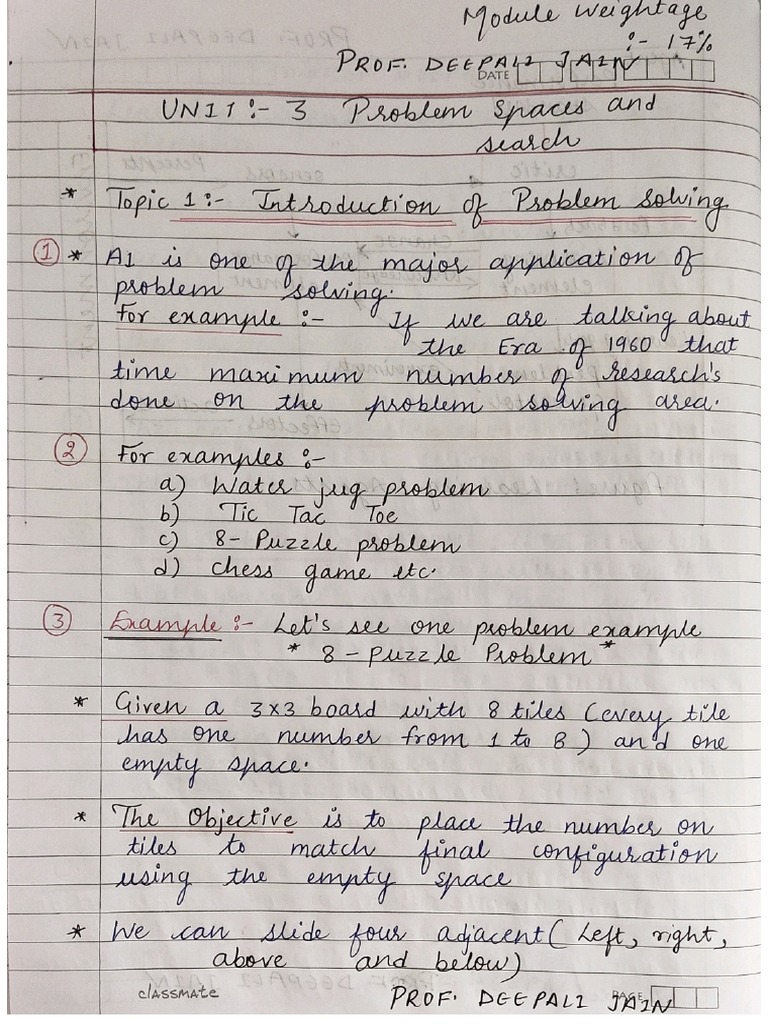 Module Weightage
:- 17%
PROF. DEEPALI JAIN
DATE
UNIT :- 3 Problem Spaces and
search
* Topic 1 :- Introduction of Problem Solving
① * AI is one of the major application of
problem solving.
For example :- If we are talking about
the Era of 1960 that
time maximum number of research's
done on the problem solving area.
② For examples :-
a) Water jug problem
b) Tic Tac Toe
c) 8-Puzzle problem
d) chess game etc.
③ Example :- Let's see one problem example
* 8-Puzzle Problem *
* Given a 3x3 board with 8 tiles (every tile
has one number from 1 to 8) and one
empty space.
* The Objective is to place the number on
tiles to match final configuration
using the empty space
* We can slide four adjacent (Left, right,
above and below)
classmate
PROF. DEEPALI JAIN
PAGE